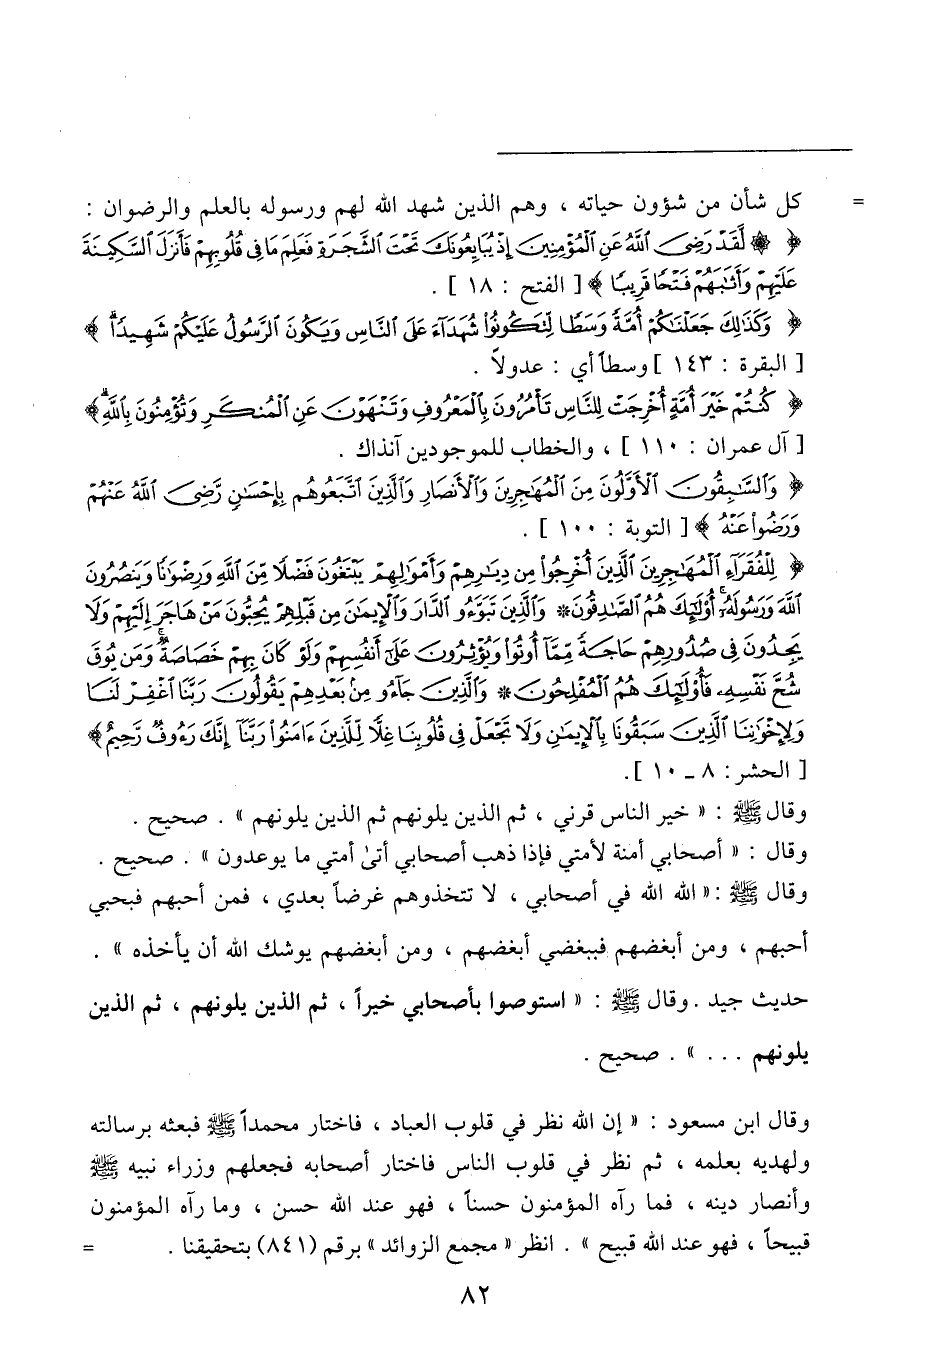 = كل شأن من شؤون حياته ، وهم الذين شهد الله لهم ورسوله بالعلم والرضوان :
﴿ ۞ لَّقَدْ رَضِيَ اللَّهُ عَنِ الْمُؤْمِنِينَ إِذْ يُبَايِعُونَكَ تَحْتَ الشَّجَرَةِ فَعَلِمَ مَا فِي قُلُوبِهِمْ فَأَنزَلَ السَّكِينَةَ
عَلَيْهِمْ وَأَثَٰبَهُمْ فَتْحًا قَرِيبًا ﴾ [ الفتح : ١٨ ] .
﴿ وَكَذَٰلِكَ جَعَلْنَٰكُمْ أُمَّةً وَسَطًا لِّتَكُونُوا۟ شُهَدَآءَ عَلَى النَّاسِ وَيَكُونَ الرَّسُولُ عَلَيْكُمْ شَهِيدًاۗ ﴾
[ البقرة : ١٤٣ ] وسطاً أي : عدولاً .
﴿ كُنتُمْ خَيْرَ أُمَّةٍ أُخْرِجَتْ لِلنَّاسِ تَأْمُرُونَ بِالْمَعْرُوفِ وَتَنْهَوْنَ عَنِ الْمُنكَرِ وَتُؤْمِنُونَ بِاللَّهِۗ ﴾
[ آل عمران : ١١٠ ] ، والخطاب للموجودين آنذاك .
﴿ وَالسَّٰبِقُونَ الْأَوَّلُونَ مِنَ الْمُهَٰجِرِينَ وَالْأَنصَارِ وَالَّذِينَ اتَّبَعُوهُم بِإِحْسَٰنٍ رَّضِيَ اللَّهُ عَنْهُمْ
وَرَضُوا۟ عَنْهُ ﴾ [ التوبة : ١٠٠ ] .
﴿ لِلْفُقَرَآءِ الْمُهَٰجِرِينَ الَّذِينَ أُخْرِجُوا۟ مِن دِيَٰرِهِمْ وَأَمْوَٰلِهِمْ يَبْتَغُونَ فَضْلًا مِّنَ اللَّهِ وَرِضْوَٰنًا وَيَنصُرُونَ
اللَّهَ وَرَسُولَهُۥٓۚ أُو۟لَٰٓئِكَ هُمُ الصَّٰدِقُونَ * وَالَّذِينَ تَبَوَّءُو الدَّارَ وَالْإِيمَٰنَ مِن قَبْلِهِمْ يُحِبُّونَ مَنْ هَاجَرَ إِلَيْهِمْ وَلَا
يَجِدُونَ فِي صُدُورِهِمْ حَاجَةً مِّمَّآ أُوتُوا۟ وَيُؤْثِرُونَ عَلَىٰٓ أَنفُسِهِمْ وَلَوْ كَانَ بِهِمْ خَصَاصَةٌۚ وَمَن يُوقَ
شُحَّ نَفْسِهِۦ فَأُو۟لَٰٓئِكَ هُمُ الْمُفْلِحُونَ * وَالَّذِينَ جَآءُو مِنۢ بَعْدِهِمْ يَقُولُونَ رَبَّنَا اغْفِرْ لَنَا
وَلِإِخْوَٰنِنَا الَّذِينَ سَبَقُونَا بِالْإِيمَٰنِ وَلَا تَجْعَلْ فِي قُلُوبِنَا غِلًّا لِّلَّذِينَ ءَامَنُوا۟ رَبَّنَآ إِنَّكَ رَءُوفٌ رَّحِيمٌ ﴾
[ الحشر : ٨ ــ ١٠ ] .
وقال ﷺ : « خير الناس قرني ، ثم الذين يلونهم ثم الذين يلونهم » . صحيح .
وقال : « أصحابي أمنة لأمتي فإذا ذهب أصحابي أتىٰ أمتي ما يوعدون » . صحيح .
وقال ﷺ : « الله الله في أصحابي ، لا تتخذوهم غرضاً بعدي ، فمن أحبهم فبحبي
أحبهم ، ومن أبغضهم فببغضي أبغضهم ، ومن أبغضهم يوشك الله أن يأخذه » .
حديث جيد . وقال ﷺ : « استوصوا بأصحابي خيراً ، ثم الذين يلونهم ، ثم الذين
يلونهم . . . » . صحيح .
وقال ابن مسعود : « إن الله نظر في قلوب العباد ، فاختار محمداً ﷺ فبعثه برسالته
ولهديه بعلمه ، ثم نظر في قلوب الناس فاختار أصحابه فجعلهم وزراء نبيه ﷺ
وأنصار دينه ، فما رآه المؤمنون حسناً ، فهو عند الله حسن ، وما رآه المؤمنون
قبيحاً ، فهو عند الله قبيح » . انظر « مجمع الزوائد » برقم (٨٤١) بتحقيقنا . =
٨٢